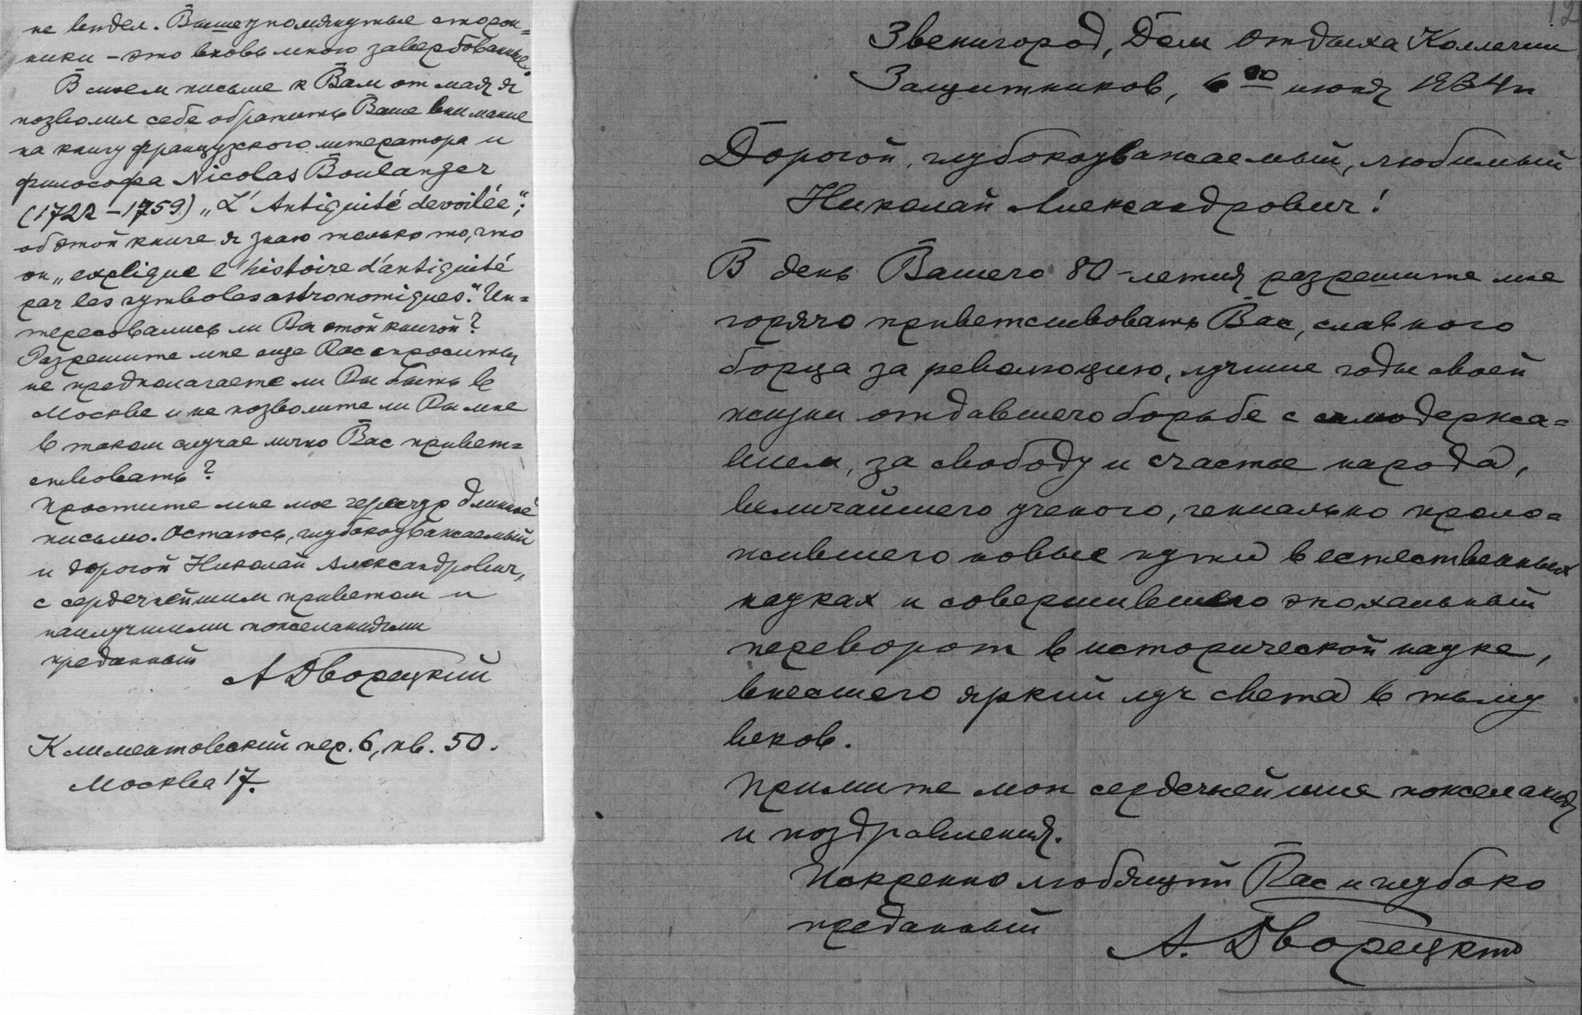 не видел. Вышеупомянутые сторон=
ники – это вновь мною завербованные.
В моем письме к Вам от мая я
позволил себе обратить Ваше внимание
на книгу французского литератора и
философа Nicolas Boulanger
(1722 – 1759) „L'Antiquité devoilée";
об этой книге я знаю только то, что
он „explique l'histoire d'antiquité
par les symboles astronomiques". Ин=
тересовались ли Вы этой книгой?
Разрешите мне еще Вас спросить,
не предполагаете ли Вы быть в
Москве и не позволите ли Вы мне
в таком случае лично Вас привет=
ствовать?
Простите мне мое чересчур длинное
письмо. Остаюсь, глубокоуважаемый
и дорогой Николай Александрович,
с сердечнейшим приветом и
наилучшими пожеланиями
преданный
А Дворецкий
Климентовский пер. 6, кв. 50.
Москва 17.
12
Звенигород, Дом отдыха Коллегии
Защитников, 6го июля 1934 г.
Дорогой, глубокоуважаемый, любимый
Николай Александрович!
В день Вашего 80-летия разрешите мне
горячо приветствовать Вас, славного
борца за революцию, лучшие годы своей
жизни отдавшего борьбе с самодержа=
вием, за свободу и счастье народа,
величайшего ученого, гениально проло=
жившего новые пути в естественных
науках и совершившего эпохальный
переворот в исторической науке,
внесшего яркий луч света в тьму
веков.
Примите мои сердечнейшие пожелания
и поздравления.
Искренно любящий Вас и глубоко
преданный
А. Дворецкий